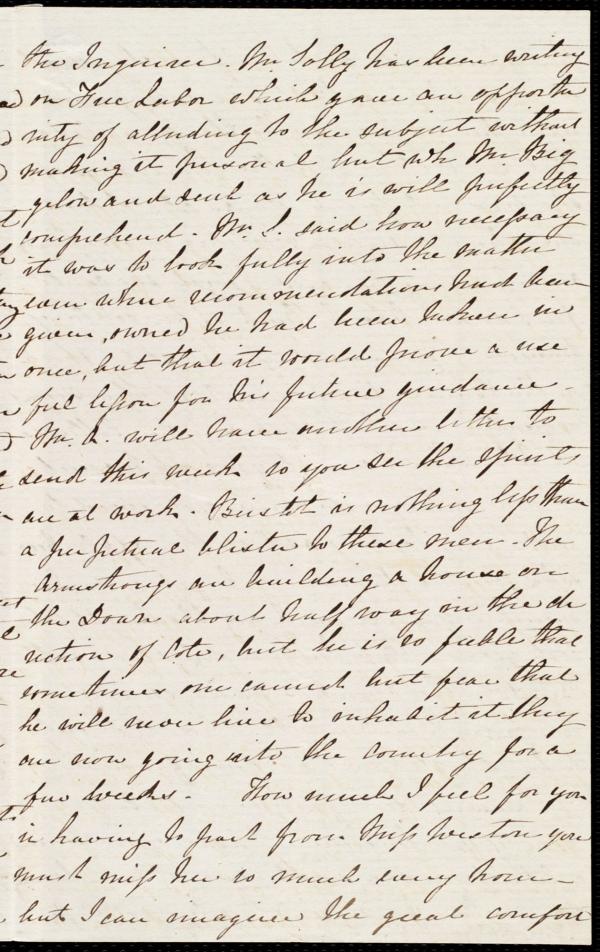 the Inquirer. Mr. Solly has been writing
on Free Labor which gave an opportu
nity of alluding to the subject without
making it personal but wh Mr. Big
gelow and such as he is will perfectly
comprehend. Mr. S. said how necessary
it was to look fully into the matter
even where recommendations had been
given, owned he had been taken in
once, but that it would prove a use
ful lesson for his future guidance.
Mr. A. will have another letter to
send this week so you see the spirits
are at work. Bristol is nothing less than
a perpetual blister to these men. The
Armstrongs are building a house on
the Down about half way in the di
rection of Cote, but he is so feeble that
sometimes one cannot but fear that
he will never live to inhabit it they
are now going into the country for a
few weeks. How much I feel for you
in having to part from Miss Weston you
must miss her so much every hour—
but I can imagine the great comfort